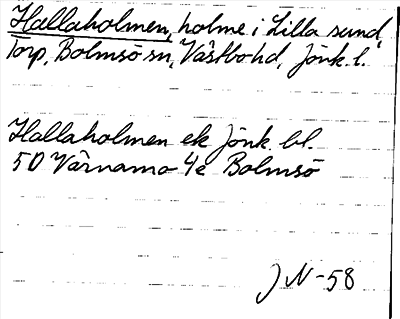 Hallaholmen, holme i Lilla sund,
Torp, Bolmsö sn, Västbo hd, Jönk. l.
Hallaholmen ek Jönk. bl.
5D Värnamo 4e Bolmsö
J N-58